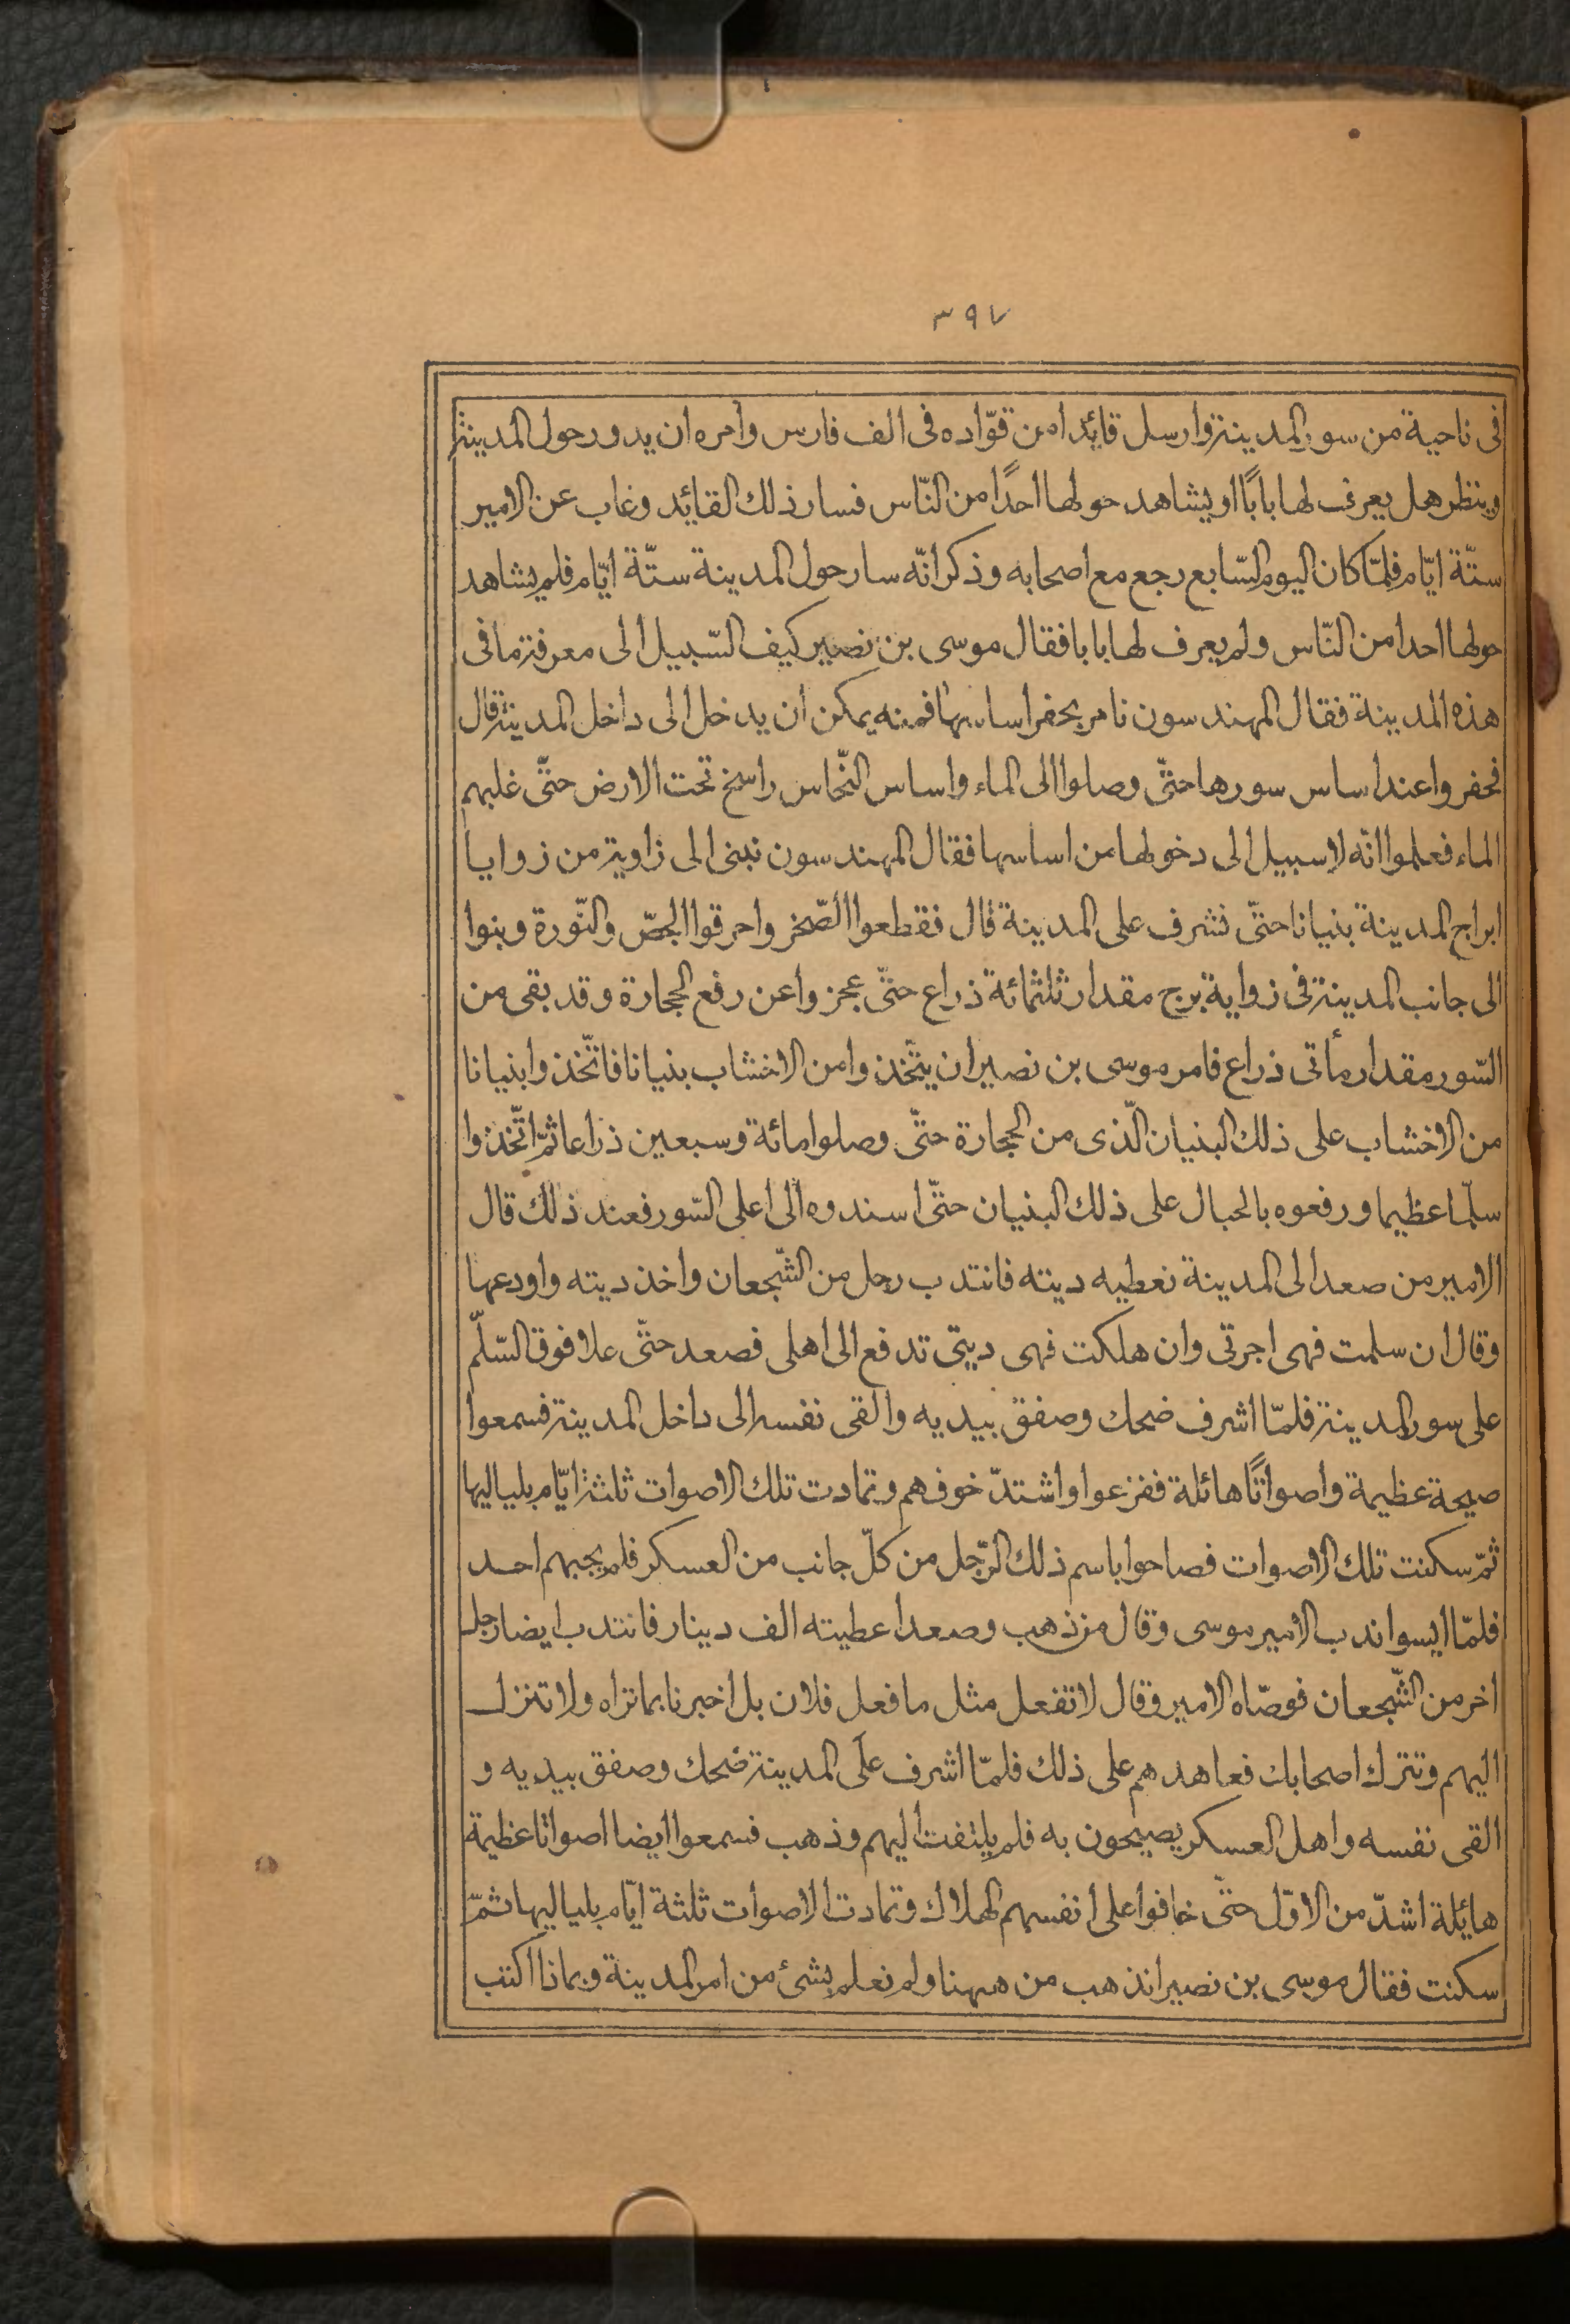 ٣٩٧
فى ناحية من سور المدينة وارسل قايئدا من قوّاده فى الف فارس وأمره ان يدور حول المدينة
وينظر هل يعرف لها بابًا او يشاهد حولها احدًا من النّاس فسار ذلك القايئد وغاب عن الامير
ستّة ايّام فلمّا كان اليوم السّابع رجع مع اصحابه وذكر انّه سار حول المدينة ستّة ايّام فلم يشاهد
حولها احدا من النّاس ولم يعرف لها بابا فقال موسى بن نصيير كيف السّبيل الى معرفة ما فى
هذه المدينة فقال المهندسون نامر بحفر اساسها فمنه يمكن ان يدخل الى داخل المدينة قال
فحفروا عند اساس سورها حتّى وصلوا الى الماء واساس النّحاس راسخ تحت الارض حتّى غلبهم
الماء فعلموا انّه لا سبيل الى دخولها من اساسها فقال المهندسون نبنى الى زاوية من زوايا
ابراج المدينة بنيانا حتّى نشرف على المدينة قال فقطعوا الصّخر واحرقوا الجصّ والنّورة وبنوا
الى جانب المدينة فى زواية برج مقدار ثلثمائة ذراع حتّى عجزوا عن رفع الحجارة وقد بقى من
السّور مقدار مأتى ذراع فامر موسى بن نصير ان يتّخذوا من الاخشاب بنيانا فاتّخذوا بنيانا
من الاخشاب على ذلك البنيان الّذى من الحجارة حتّى وصلوا مائة وسبعين ذراعا ثمّ اتّخذوا
سلّما عظيما ورفعوه بالحبال على ذلك البنيان حتّى اسندوه الى اعلى السّور فعند ذلك قال
الامير من صعد الى المدينة نعطيه ديته فانتدب رجل من الشّجعان واخذ ديته واودعها
وقال ان سلمت فهى اجرتى وان هلكت فهى ديتى تدفع الى اهلى فصعد حتّى علا فوق السّلّم
على سور المدينة فلمّا اشرف ضحك وصفق بيديه والقى نفسه الى داخل المدينة فسمعوا
صيحة عظيمة وأصواتًا هائلة ففزعوا واشتدّ خوفهم وتمادت تلك الاصوات ثلثة ايّام بلياليها
ثمّ سكنت تلك الاصوات فصاحوا باسم ذلك الرّجل من كلّ جانب من العسكر فلم يجبهم احد
فلمّا ايسوا ندب الامير موسى وقال من ذهب وصعد اعطيته الف دينار فانتدب ايضا رجل
اخر من الشّجعان فوصّاه الامير وقال لا تفعل مثل ما فعل فلان بل اخبرنا بما تراه ولا تنزل
اليهم وتترك اصحابك فعاهدهم على ذلك فلمّا اشرف على المدينة ضحك وصفق بيديه و
القى نفسه واهل العسكر يصيحون به فلم يلتفت اليهم وذهب فسمعوا ايضا اصواتا عظيمة
هايئلة اشدّ من الاوّل حتّى خافوا على انفسهم الهلاك وتمادت الاصوات ثلثة ايّام بلياليها ثمّ
سكنت فقال موسى بن نصير انذهب من ههنا ولم نعلم بشئ من امر المدينة وبماذا اكتب